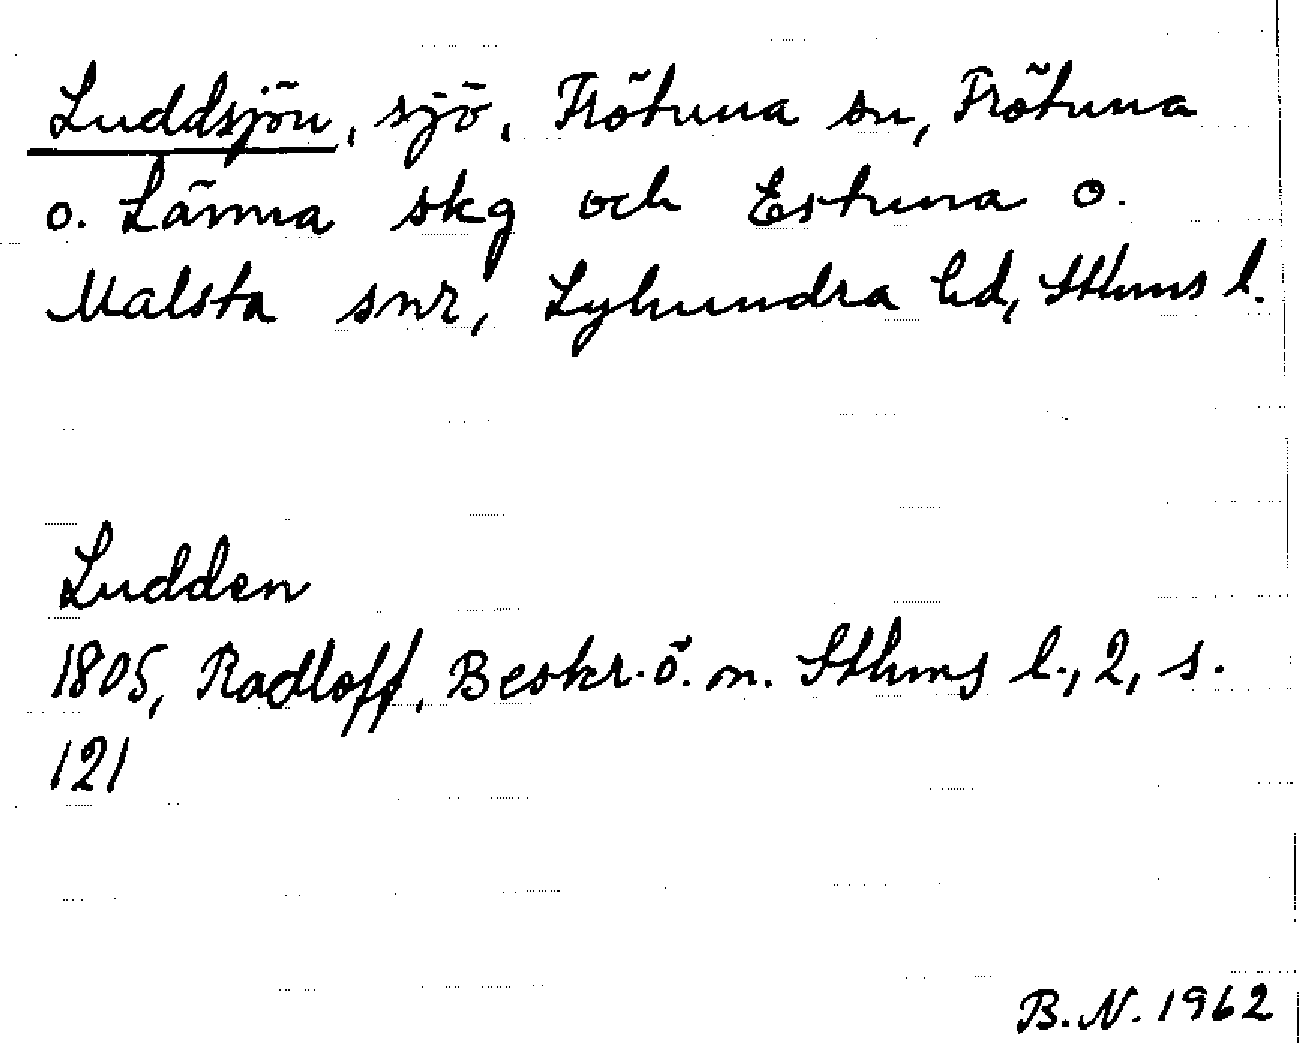 Luddsjön, sjö, Frötuna sn, Frötuna
o. Länna skg och Estuna o.
Malsta snr, Lyhundra hd, Sthms l.
Ludden
1805, Radloff, Beskr. ö. n. Sthms l., 2, s.
121
B.N. 1962